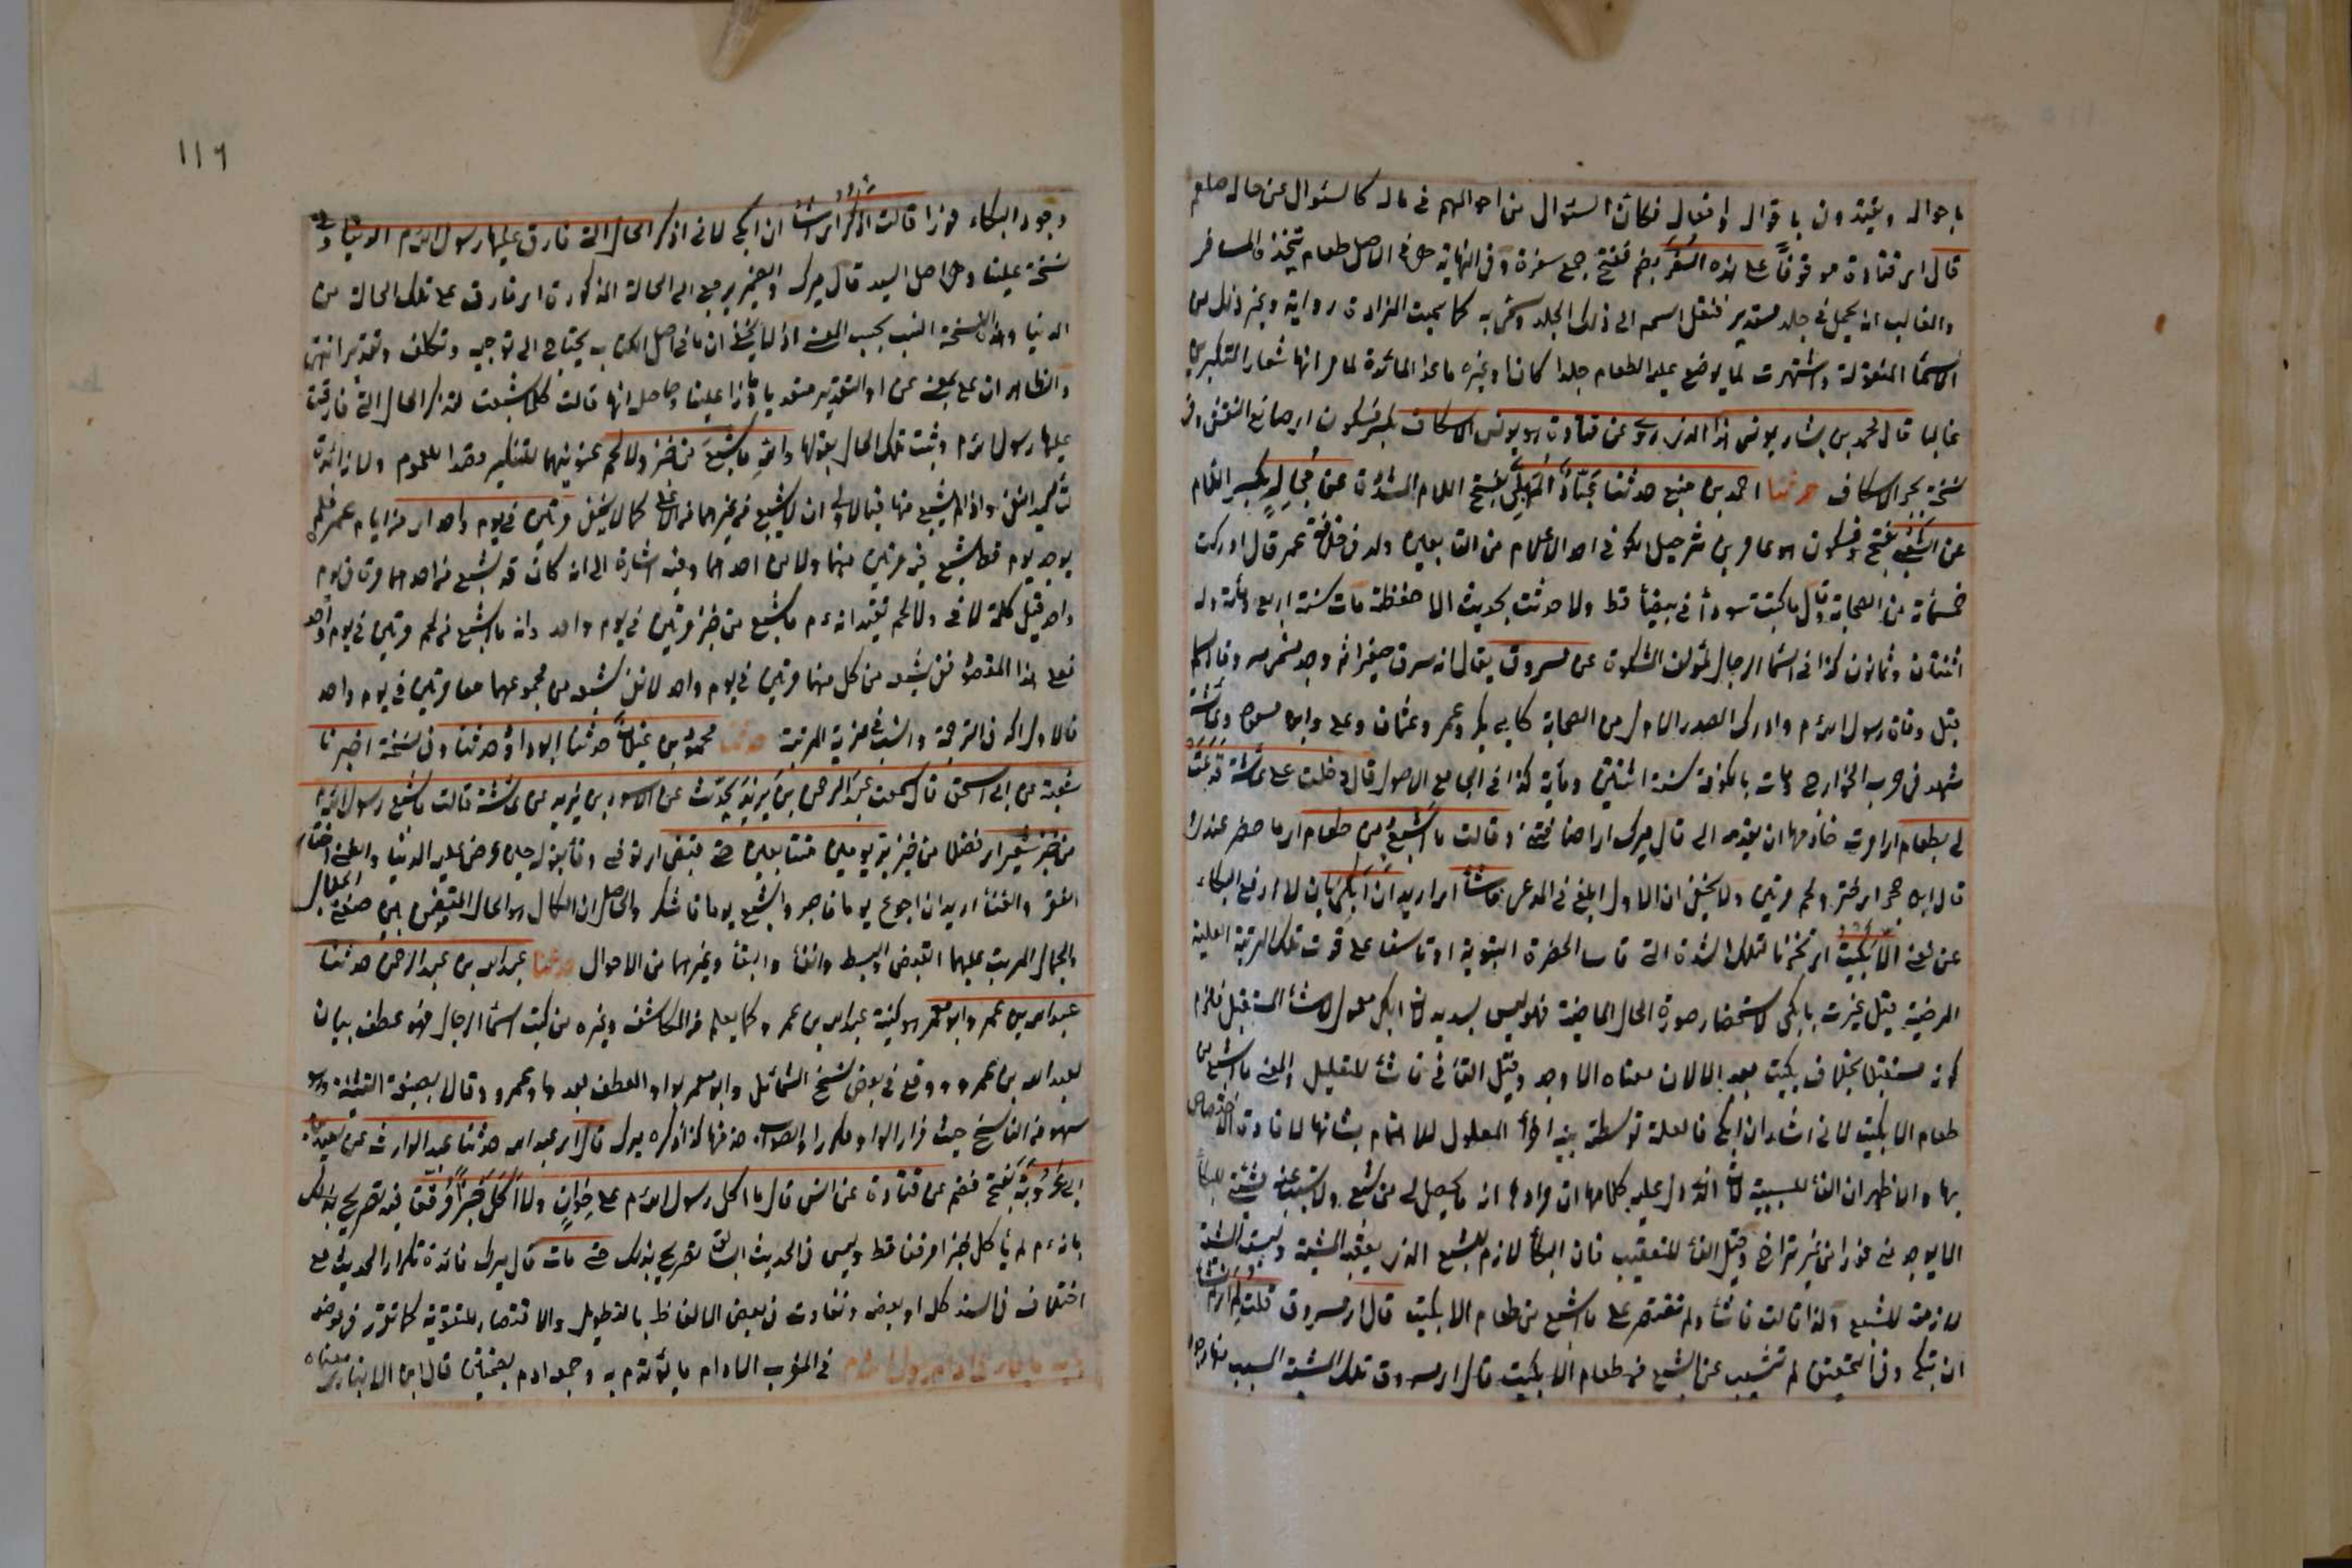 باحواله ويقتدون باقواله وافعاله فكان السؤال عن احوالهم في ماله كالسؤال عن حاله صلعم
قال اى قتادة موقوفا على هذه السفر بضم ففتح جمع سفرة وفى النهاية هى فى الاصل طعام يتخذه المسافر
والغالب انه يحمل فى جلد مستدير فنقل اسمه الى ذلك الجلد وسمى به كما سميت المزادة رواية وغير ذلك من
الاسماء المنقولة واشتهرت لما يوضع عليه الطعام جلدا كان او غيره ما عدا المائدة لما مر انها شعار المتكبرين
غالبا قال محمد بن بشار يونس هذا الذى روى عن قتادة هو يونس الاسكاف بكسر فسكون اى صانع القفش وفى
نسخة بجر الاسكاف حدثنا احمد بن منيع حدثنا عباد بن عباد المهلبى بفتح اللام المشددة عن مجالد بكسر اللام
عن الشعبى بفتح فسكون هو عامر بن شرحبيل الكوفى احد الاعلام من التابعين ولد فى خلافة عمر قال ادركت
خمسمائة من الصحابة وقال ما كتبت سوداء فى بيضاء قط ولا حدثت بحديث الا حفظته مات سنة اربع ومائة وله
اثنتان وثمانون كذا فى اسماء الرجال لمؤلف المشكوة عن مسروق يقال انه سرق صغيرا ثم وجد فسمى به وفد اسلم
قبل وفاة رسول الله م وادرك الصدر الاول من الصحابة كابى بكر وعمر وعثمان وعلى وابن مسعود وعائشة
شهد فى حرب الخوارج ومات بالكوفة سنة اثنتين ومأية كذا فى الجامع الاصول قال دخلت على عائشة فدعت
لى بطعام اى امرت خادمها ان يقدمه الى قال ميرك اى اضافتنى وقالت ما اشبع من طعام اى ما حضر عندك
قال ابن حجر اى خبز ولحم مرتين ولا يخفى ان الاول ابلغ فى المدعى فاشاء اى اريد ان ابكى بان لا ادفع البكاء
عن نفسى الا بكيت اى تحزنا لتلك الشدة التى قاساها الحضرة النبوية او تاسفا على فوت تلك المرتبة العلية
المرضية قيل عبرت بابكى لاستحضار صورة الحال الماضية فهو ليس بسديد لان ابكى معمول لاشاء المستقبل فلزم
كونه مستقبلا بخلاف بكيت بعد الا لان معناه الا وجد وقيل الفاء فى فاشاء للتعليل والمعنى ما اشبع من
طعام الا بكيت لانى اشاء ان ابكى فالعلة توسطت بين اجزاء المعلول للاهتمام بشانها لافادة الاختصاص
بها والاظهر ان الفاء للسببية لان الذى دل عليه كلامها ان مرادها انه ما يحصل لى من شبع ولا تسبب عنه مشية للبكاء
الا يوجد منى فورا من غير تراخ وقيل الفاء للتعقيب فان البكاء لازم للشبع الذى يعقبه المشية وليست المشية
لازمة للشبع ولذا قالت فاشاء ولم تقتصر على ما اشبع من طعام الا بكيت قال اى مسروق قلت لم اى لم تشاء
ان تبكى وفى التحقيق لم تسبب عن الشبع من طعام الا بكيت قال اى مسروق تلك المشية المسبب
١١٦
وجود البكاء فورا قالت اذكر اى اشاء ان ابكى لانى اذكر الحال التى فارق عليها رسول الله م الدنيا وفى
نسخة علينا وهى اصل السيد قال ميرك والضمير يرجع الى الحالة المذكورة اى فارق على تلك الحالة من
الدنيا وهذا النسخة انسب بحسب المعنى اذ لا يخفى ان ما فى اصل الكتاب يحتاج الى توجيه وتكلف وتقدير انتهى
والظاهر ان على بمعنى عن او التقدير متعديا علينا وحاصل انها قالت كلما شبعت اتذكر الحال التى فارقت
عليها رسول الله م وبينت تلك الحال بقولها والله ما شبع من خبز ولا لحم بتنوينهما للتنكير قصدا للعموم ولا زائدة
لتأكيد النفى واذا لم يشبع منهما فبالاولى ان لا يشبع من غيرهما من الاعلى كما لا يخفى مرتين فى يوم واحد اى من ايام عمره فلم
يوجد يوم قط يشبع فيه مرتين منهما ولا من احدهما وفيه اشارة الى انه كان قد يشبع من احدهما مرة فى يوم
واحد قيل كلمة لا فى ولا لحم تفيد انه ع م ما شبع من خبز مرتين فى يوم واحد وانه ما شبع من لحم مرتين فى يوم واحد
فعلى هذا المقصود نفى شبعه من كل منهما مرتين فى يوم واحد لا نفى شبعه من مجموعهما معا مرتين فى يوم واحد
فالاول اكد فى الترجمة والثانى مزية المرتبة حدثنا محمود بن غيلان حدثنا ابو داود حدثنا وفى نسخة اخبرنا
شعبة عن ابى اسحق قال سمعت عبد الرحمن بن يزيد يحدث عن الاسود بن يزيد عن عائشة قالت ما شبع رسول الله م
من خبز شعير اى فضلا من خبز بر يومين متتابعين حتى قبض اى توفى وفاء بقوله حين عرض عليه الدنيا والغنى اختار
الفقر والفناء اريد ان اجوع يوما فاصبر واشبع يوما فاشكر والحاصل ان الكمال هو الحال المتضمن بين صفتى الجلال
والجمال المترتب عليهما القبض والبسط والفناء والبقاء وغيرهما من الاحوال حدثنا عبد الله بن عبد الرحمن حدثنا
عبد الله بن عمر وابو معمر هو كنية عبد الله بن عمر وكما يعلم من الكاشف وغيره من كتب اسماء الرجال فهو عطف بيان
لعبد الله بن عمرو ووقع فى بعض نسخ الشمائل وابو معمر بواو العطف بعد واو عمرو وقالا بصيغة التثنية وهو
سهو من الناسخ حيث قرأ الواو مكررا والصواب حذفها كذا ذكره ميرك قال اى عبد الله حدثنا عبد الوارث عن سعيد بن
ابى عروبة بفتح فضم عن قتادة عن انس قال ما اكل رسول الله م على خوان ولا اكل خبزا مرققا فيه تصريح بذلك
بانه ع م لم يأكل خبزا مرققا قط وليس فى الحديث السابق تصريح بذلك حتى مات قال ميرك فائدة تكرار الحديث مع
اختلاف فى السند كله او بعضه وتفاوت فى بعض الالفاظ بالتطويل والاقتصار للتقوية كما تقرر فى موضعه
فى المغرب الادام ما يؤتدم به وجمعه ادم بضمتين قال ابن الانبارى معناه